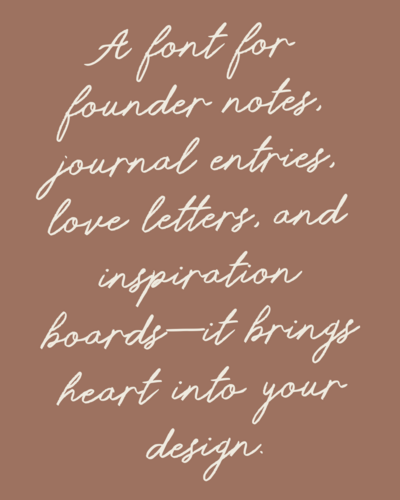 A font for
founder notes,
journal entries,
love letters, and
inspiration
boards—it brings
heart into your
design.